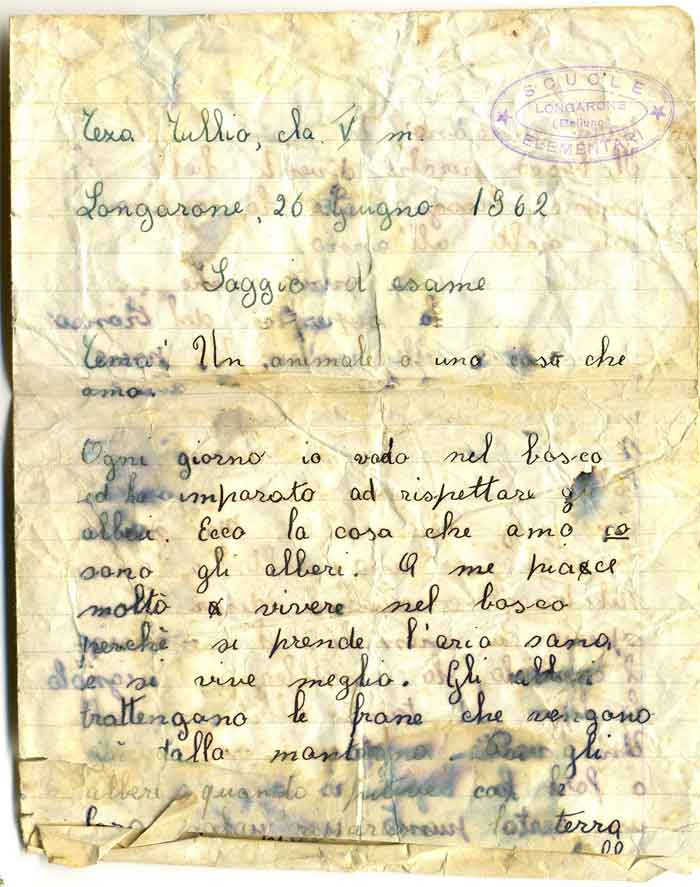 SCUOLE
LONGARONE
(Belluno)
ELEMENTARI
Teza Tullio, cla. V m.
Longarone, 26 Giugno 1962
Saggio d'esame
Tema: Un animale o una cosa che
amo.
Ogni giorno io vado nel bosco
ed ho imparato ad rispettare gli
alberi. Ecco la cosa che amo co
sono gli alberi. A me piasce
molto vivere nel bosco
perchè si prende l'aria sana,
e si vive meglio. Gli alberi
trattengano le frane che vengano
giù dalla montagna. Poi gli
alberi quando
terra